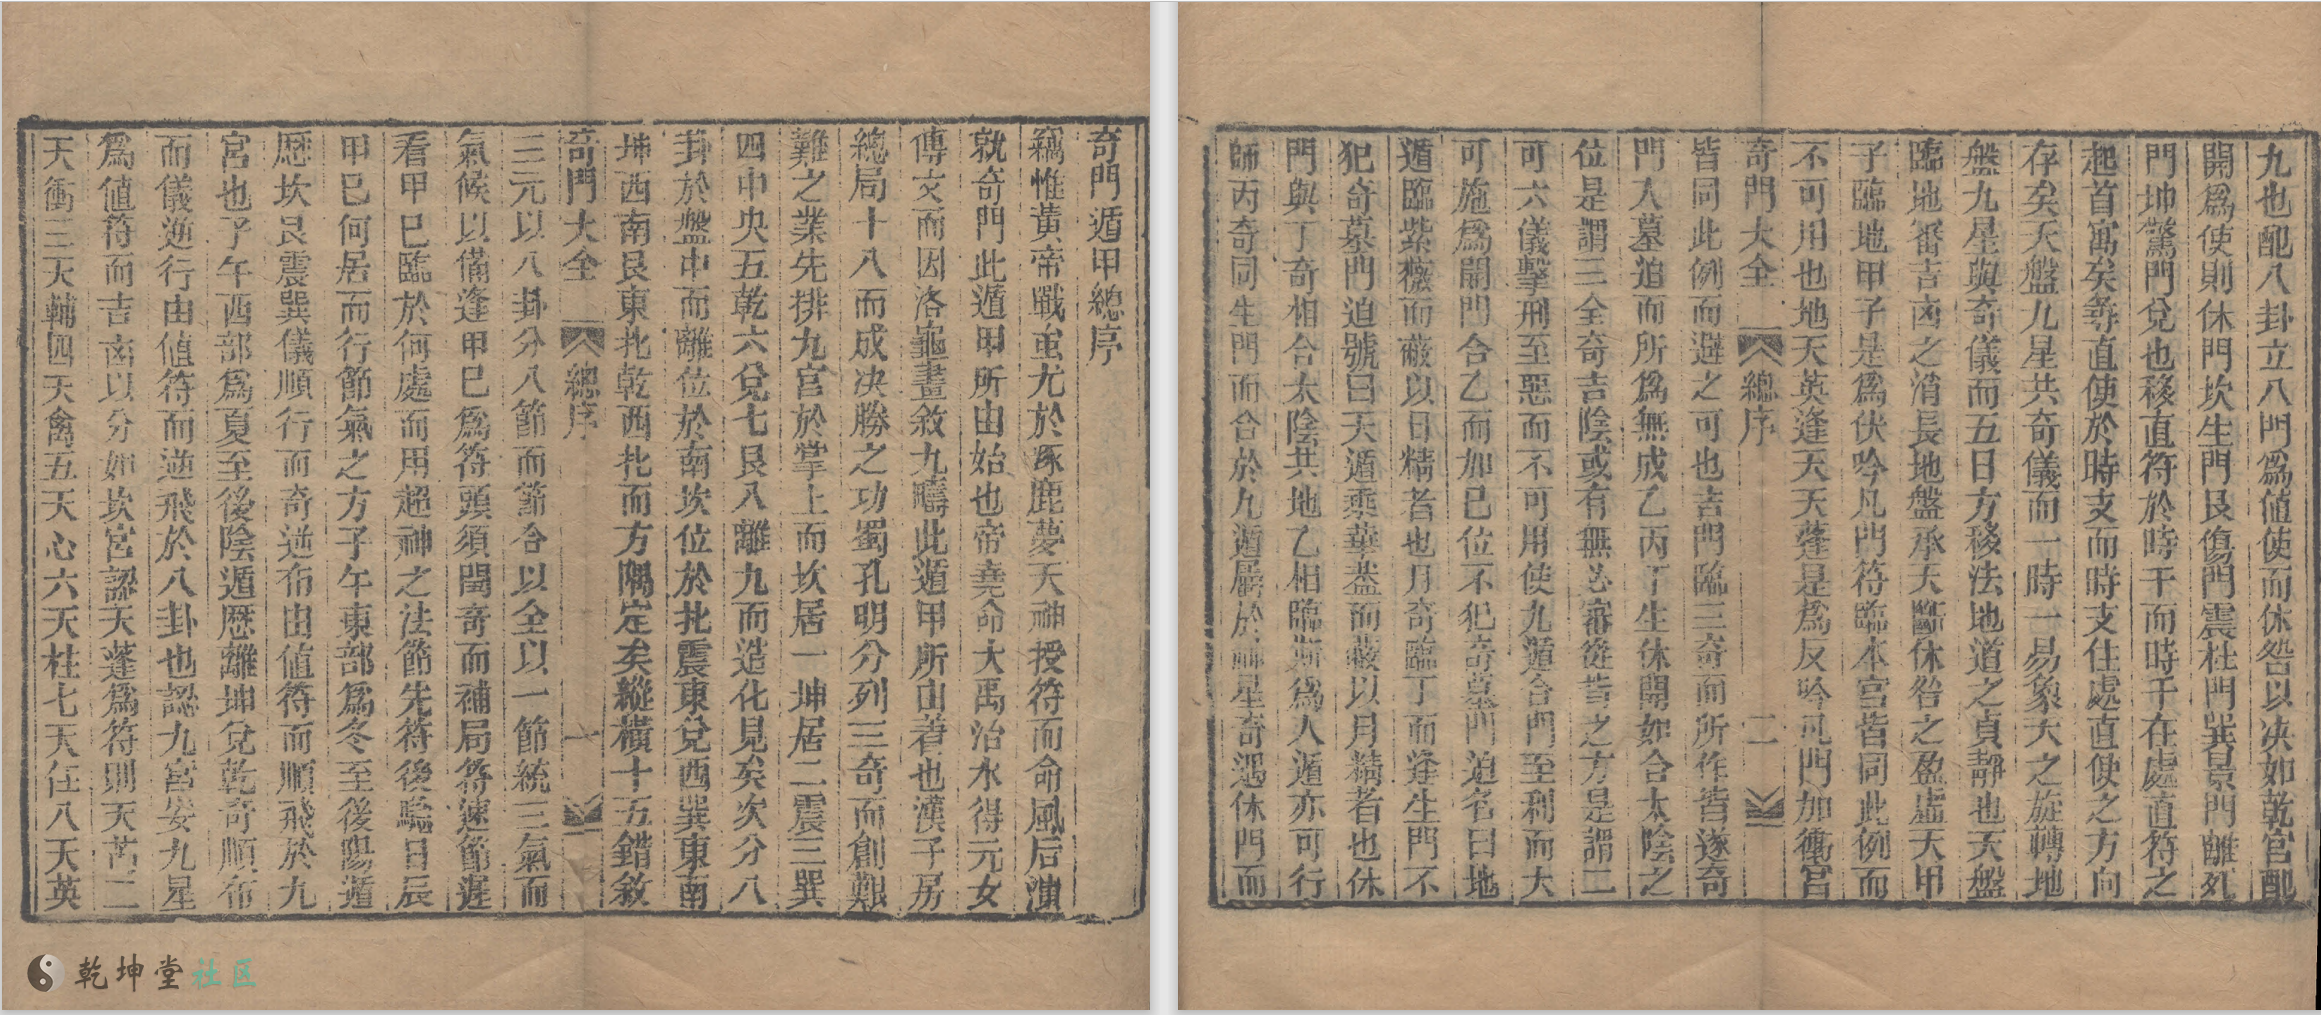 奇門遁甲總序
竊惟黃帝戰蚩尤於涿鹿夢天神授符而命風后演
就奇門此遁甲所由始也帝堯命大禹治水得元女
傳文而因洛龜畫敘九疇此遁甲所由著也漢子房
總局十八而成决勝之功蜀孔明分列三奇而創艱
難之業先排九宮於掌上而坎居一坤居二震三巽
四中央五乾六兌七艮八離九而造化見矣次分八
卦於盤中而離位於南坎位於北震東兌西巽東南
坤西南艮東北乾西北而方隅定矣縱橫十五錯敘
奇門大全 總序 一
三元以八卦分八節而節合以全以一節統三氣而
氣候以備逢甲巳爲符頭須閏奇而補局符速節遲
看甲巳臨於何處而用超神之法節先符後驗日辰
甲巳何居而行節氣之方子午東部爲冬至後陽遁
歷坎艮震巽儀順行而奇逆布由值符而順飛於九
宮也子午西部爲夏至後陰遁歷離坤兌乾奇順布
而儀逆行由值符而逆飛於八卦也認九宮安九星
爲値符而吉凶以分如坎宮認天蓬爲符則天芮二
天衝三天輔四天禽五天心六天柱七天任八天英
九也配八卦立八門爲値使而休咎以决如乾宮配
開爲使則休門坎生門艮傷門震杜門巽景門離死
門坤驚門兌也移直符於時干而時干在處直符之
起首寓矣尋直使於時支而時支住處直使之方向
存矣天盤九星共奇儀而一時一易象天之旋轉地
盤九星與奇儀而五日方移法地道之貞靜也天盤
臨地審吉凶之消長地盤承天斷休咎之盈虛天甲
子臨地甲子是爲伏吟凡門符臨本宮皆同此例而
不可用也地天英逢天天蓬是爲反吟凡門加衝宮
奇門大全 總序 二
皆同此例而避之可也吉門臨三奇而所作皆遂奇
門入墓迫而所爲無成乙丙丁生休開如合太陰之
位是謂三全奇吉陰或有無必審從吉之方是謂二
可六儀擊刑至惡而不可用使九遁合門至利而大
可施爲開門合乙而加巳位不犯奇墓門迫名曰地
遁臨紫薇而蔽以日精者也月奇臨丁而逢生門不
犯奇墓門迫號曰天遁乘華蓋而蔽以月精者也休
門與丁奇相合太陰共地乙相臨斯爲人遁亦可行
師丙奇同生門而合於九遁屬於神星奇遇休門而